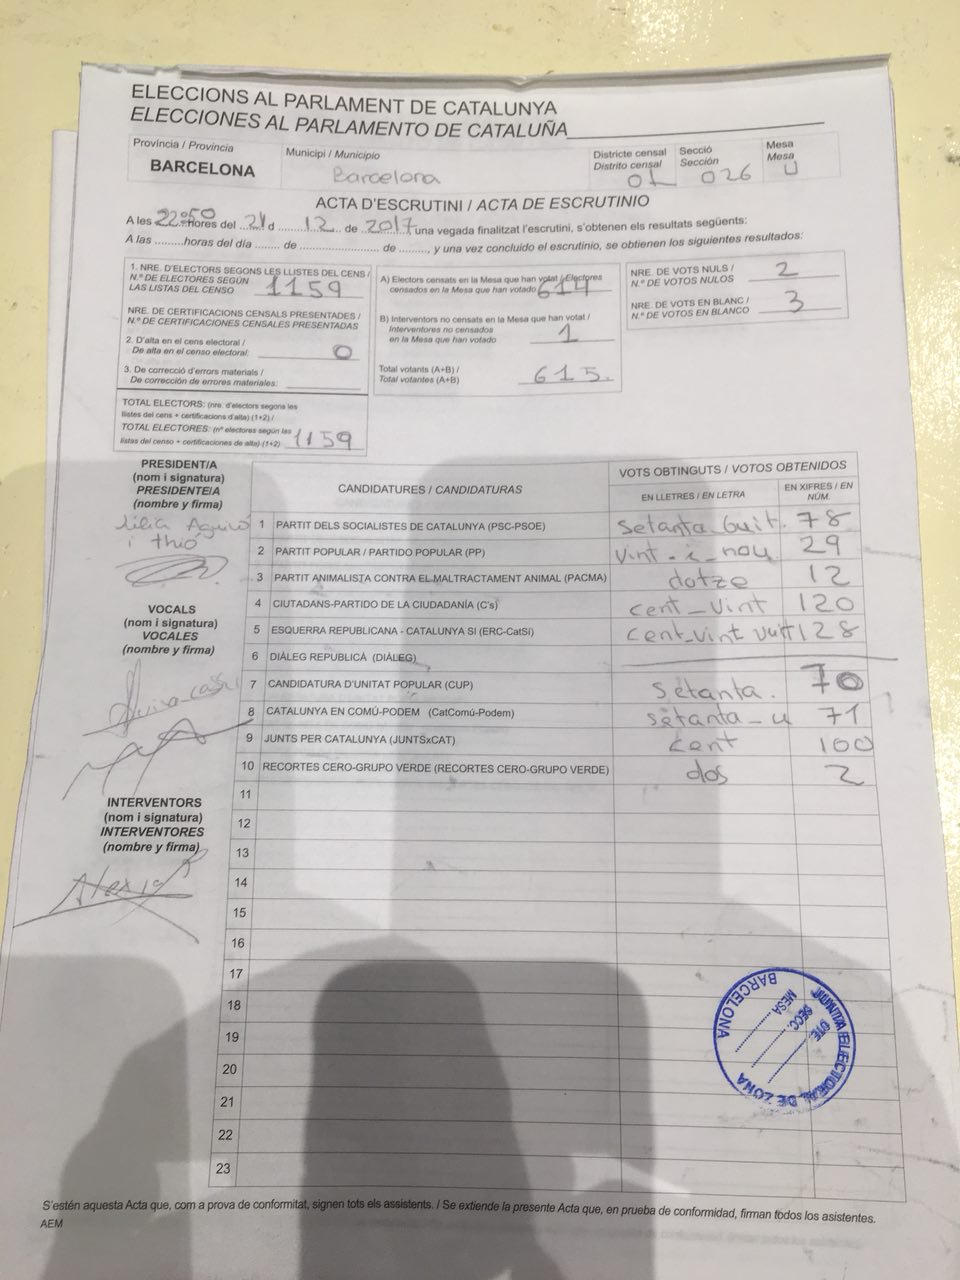 ELECCIONS AL PARLAMENT DE CATALUNYA
ELECCIONES AL PARLAMENTO DE CATALUÑA
Província / Provincia
BARCELONA
Municipi / Municipio
Barcelona
Districte censal
Distrito censal
01
Secció
Sección
026
Mesa
Mesa
U
ACTA D'ESCRUTINI / ACTA DE ESCRUTINIO
A les 22:50 hores del 21 d ........ 12 ... de 2017 una vegada finalitzat l'escrutini, s'obtenen els resultats següents:
A las .........horas del día ....... de ........................ de ........, y una vez concluido el escrutinio, se obtienen los siguientes resultados:
1. NRE. D'ELECTORS SEGONS LES LLISTES DEL CENS /
N.º DE ELECTORES SEGÚN
LAS LISTAS DEL CENSO 1159
NRE. DE CERTIFICACIONS CENSALS PRESENTADES /
N.º DE CERTIFICACIONES CENSALES PRESENTADAS
2. D'alta en el cens electoral /
De alta en el censo electoral: 0
3. De correcció d'errors materials /
De corrección de errores materiales:
TOTAL ELECTORS: (nre. d'electors segons les
llistes del cens + certificacions d'alta) (1+2) /
TOTAL ELECTORES: (nº electores según las
listas del censo + certificaciones de alta) (1+2) 1159
A) Electors censats en la Mesa que han votat / Electores
censados en la Mesa que han votado 614
B) Interventors no censats en la Mesa que han votat /
Interventores no censados
en la Mesa que han votado 1
Total votants (A+B) /
Total votantes (A+B) 615.
NRE. DE VOTS NULS /
N.º DE VOTOS NULOS 2
NRE. DE VOTS EN BLANC /
N.º DE VOTOS EN BLANCO 3
PRESIDENT/A
(nom i signatura)
PRESIDENTE/A
(nombre y firma)
i Thió
VOCALS
(nom i signatura)
VOCALES
(nombre y firma)
INTERVENTORS
(nom i signatura)
INTERVENTORES
(nombre y firma)
CANDIDATURES / CANDIDATURAS
VOTS OBTINGUTS / VOTOS OBTENIDOS
EN LLETRES / EN LETRA
EN XIFRES / EN
NÚM.
1 PARTIT DELS SOCIALISTES DE CATALUNYA (PSC-PSOE) setanta buit. 78
2 PARTIT POPULAR / PARTIDO POPULAR (PP) vint-i-nou 29
3 PARTIT ANIMALISTA CONTRA EL MALTRACTAMENT ANIMAL (PACMA) dotze 12
4 CIUTADANS-PARTIDO DE LA CIUDADANÍA (C's) cent-vint 120
5 ESQUERRA REPUBLICANA - CATALUNYA SÍ (ERC-CatSí) cent-vint vuit 128
6 DIÀLEG REPUBLICÀ (DIÀLEG)
7 CANDIDATURA D'UNITAT POPULAR (CUP) setanta. 70
8 CATALUNYA EN COMÚ-PODEM (CatComú-Podem) setanta-u 71
9 JUNTS PER CATALUNYA (JUNTSxCAT) cent 100
10 RECORTES CERO-GRUPO VERDE (RECORTES CERO-GRUPO VERDE) dos 2
11
12
13
14
15
16
17
18
19
20
21
22
23
JUNTA ELECTORAL DE ZONA
BARCELONA
DTE.
SECC.
MESA
S'estén aquesta Acta que, com a prova de conformitat, signen tots els assistents. / Se extiende la presente Acta que, en prueba de conformidad, firman todos los asistentes.
AEM